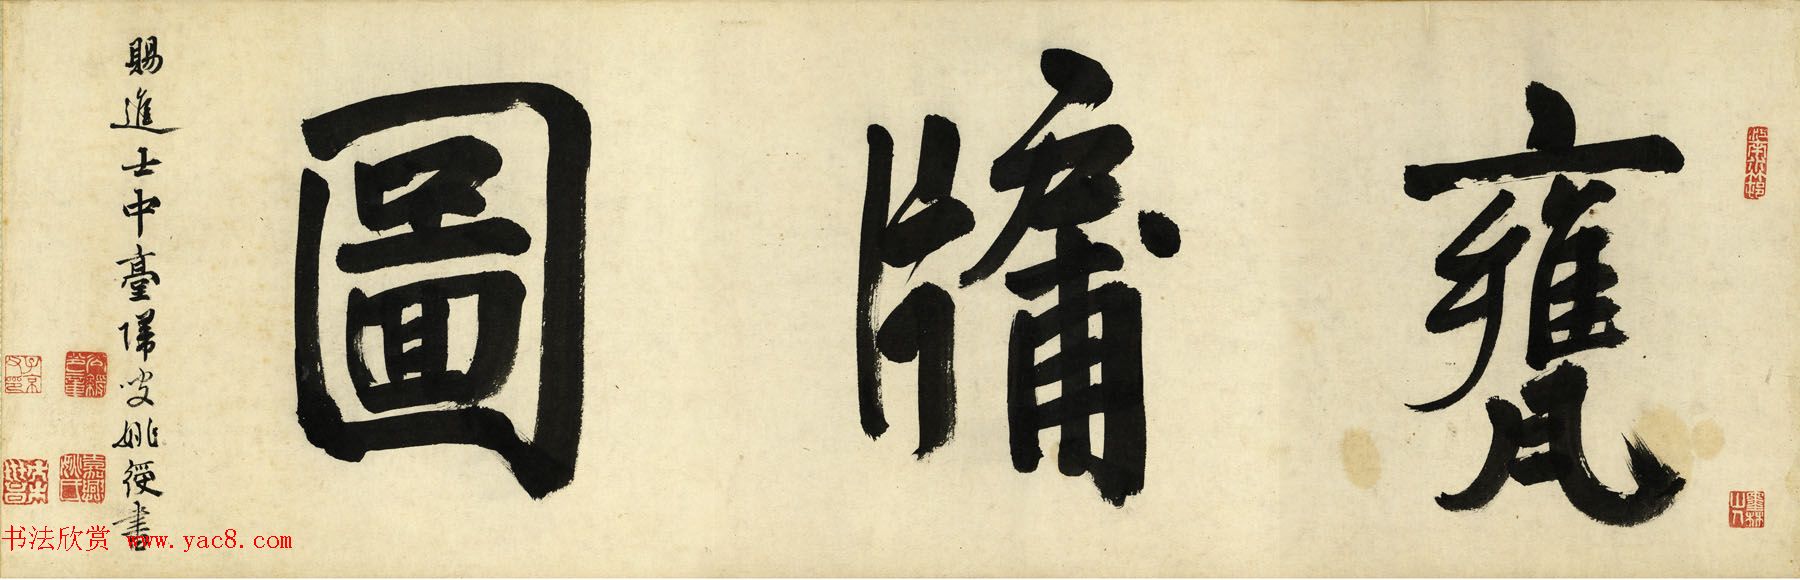 甕牖圖
賜進士中臺歸叟姚綬書
书法欣赏 www.yac8.com